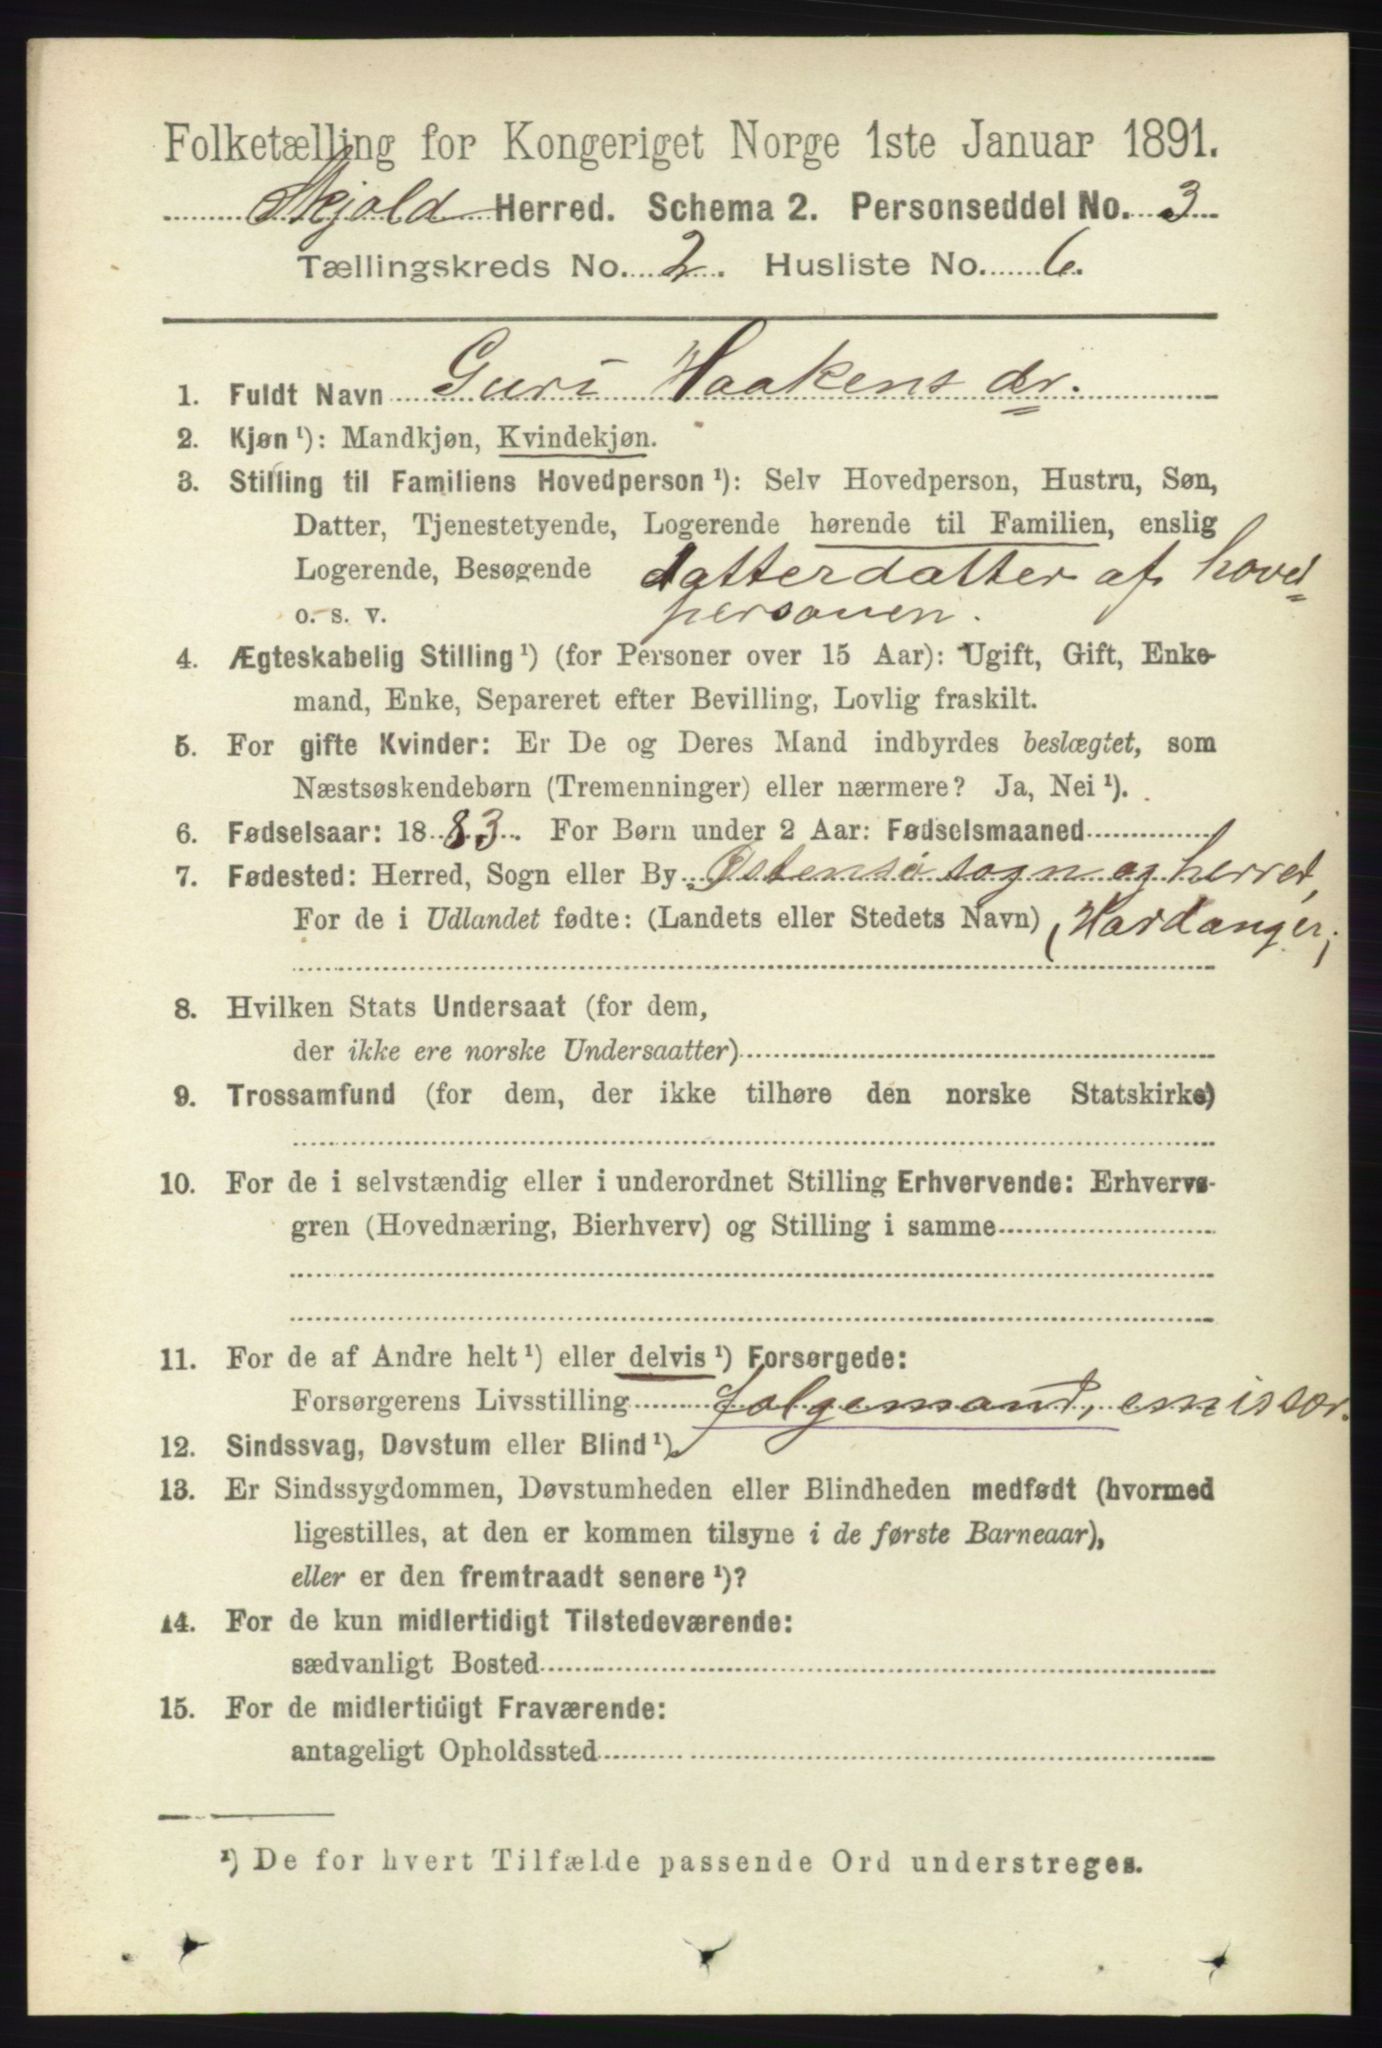 Folketælling for Kongeriget Norge 1ste Januar 1891.
Skjold Herred. Schema 2. Personseddel No. 3
Tællingskreds No. 2. Husliste No. 6.
1. Fuldt Navn Guri Haakensdr.
2. Kjøn ¹): Mandkjøn, Kvindekjøn.
3. Stilling til Familiens Hovedperson ¹): Selv Hovedperson, Hustru, Søn,
Datter, Tjenestetyende, Logerende hørende til Familien, enslig
Logerende, Besøgende datterdatter af hoved=
o. s. v. personen.
4. Ægteskabelig Stilling ¹) (for Personer over 15 Aar): Ugift, Gift, Enke-
mand, Enke, Separeret efter Bevilling, Lovlig fraskilt.
5. For gifte Kvinder: Er De og Deres Mand indbyrdes beslægtet, som
Næstsøskendebørn (Tremenninger) eller nærmere? Ja, Nei ¹).
6. Fødselsaar: 1883. For Børn under 2 Aar: Fødselsmaaned
7. Fødested: Herred, Sogn eller By Østensø sogn og herret,
For de i Udlandet fødte: (Landets eller Stedets Navn) (Hardanger;
8. Hvilken Stats Undersaat (for dem,
der ikke ere norske Undersaatter)
9. Trossamfund (for dem, der ikke tilhøre den norske Statskirke)
10. For de i selvstændig eller i underordnet Stilling Erhvervende: Erhvervs-
gren (Hovednæring, Bierhverv) og Stilling i samme
11. For de af Andre helt ¹) eller delvis ¹) Forsørgede:
Forsørgerens Livsstilling folgemand, emissær.
12. Sindssvag, Døvstum eller Blind ¹).
13. Er Sindssygdommen, Døvstumheden eller Blindheden medfødt (hvormed
ligestilles, at den er kommen tilsyne i de første Barneaar),
eller er den fremtraadt senere ¹)?
14. For de kun midlertidigt Tilstedeværende:
sædvanligt Bosted
15. For de midlertidigt Fraværende:
antageligt Opholdssted
¹) De for hvert Tilfælde passende Ord understreges.